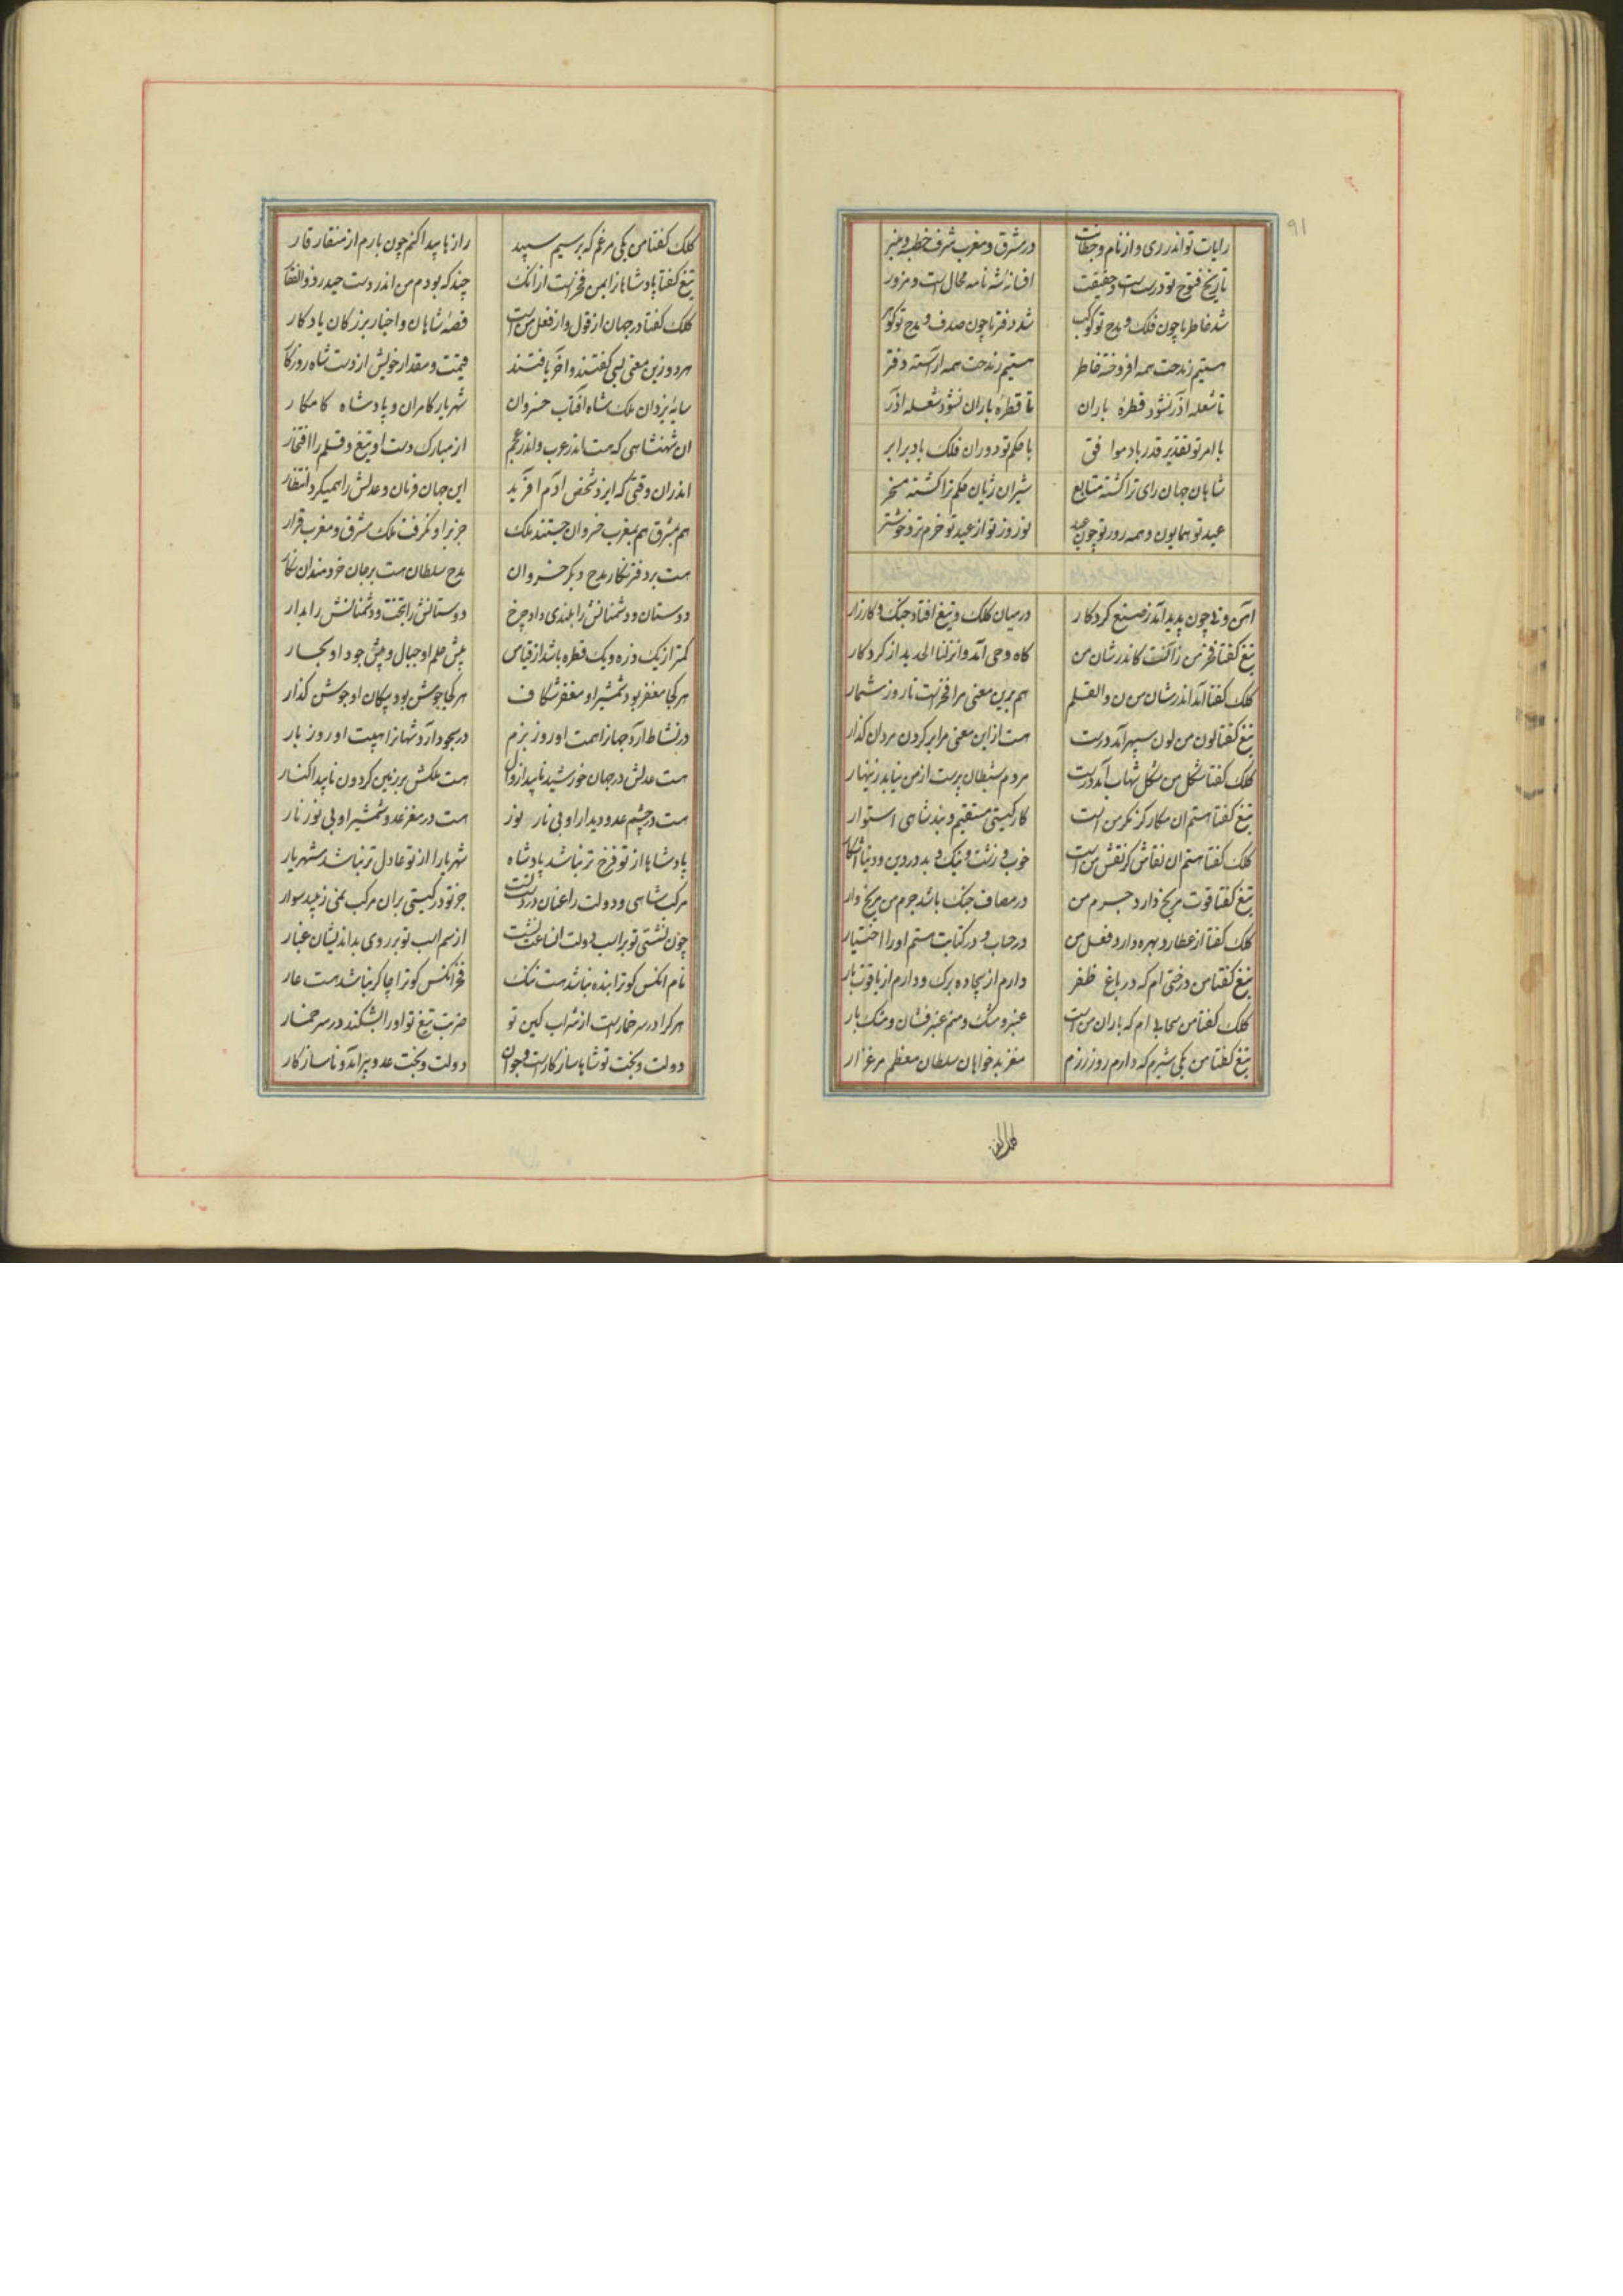 ۹۱
رایات تو اندر ری و از نام و خطابت در مشرق و مغرب شرف خطبه و منبر
تاریخ فتوح تو درست است و حقیقت افسانه شه نامه محال است و مزور
شد خاطر ما چون فلک و مدح تو کوکب شد دفتر ما چون صدف و مدح تو کوهر
هستیم ز مدحت همه افروخته خاطر هستیم ز مدحت همه آراسته دفتر
تا شعله آذر نشود قطره باران تا قطره باران نشود شعله آذر
با امر تو تقدیر قدر باد موافق با حکم تو دوران فلک باد برابر
شاهان جهان رای ترا کشته متابع شیران ژیان حکم ترا کشته مسخر
عید تو همایون و همه روز تو چون عید نوروز تو از عید تو خرم تر و خوشتر
آهن و نی چون پدید آمد ز صنع کردکار در میان کلک و تیغ افتاد جنک و کارزار
تیغ کفتا فخر من زآنست کاندر شان من کاه وحی آمد و انزلنا الحدید از کردکار
کلک کفتا آمد اندر شان من ن والقلم هم برین معنی مرا فخرست تا روز شمار
تیغ کفتا لون من لون سپهر آمد درست هست ازین معنی مرا بر کردن مردان کذار
کلک کفتا شکل من شکل شهاب آمد درست مردم شیطان پرست از من نیابد زینهار
تیغ کفتا هستم آن مکار کز مکر من است کار کیتی مستقیم و بند شاهی استوار
کلک کفتا هستم آن نقاش کز نقش من است خوب و زشت و نیک و بد در دین و دنیا آشکار
تیغ کفتا قوت مریخ دارد جرم من در مصاف جنک باشد جرم من مریخ وار
کلک کفتا از عطارد بهره دارد فعل من در حساب و در کتابت هستم او را اختیار
تیغ کفتا من درختی ام که در باغ ظفر دارم از بیجاده برک و دارم از یاقوت بار
کلک کفتا من سحابی ام که باران من است عنبر و مشک و منم عنبر فشان و مشک بار
تیغ کفتا من یکی شیرم که دارم روز رزم مغز بدخواهان سلطان معظم مرغزار
کلک کفتا
کلک کفتا من یکی مرغم که بر سیم سپید رازها پیدا کنم چون بارم از منقار قار
تیغ کفتا پادشاهان را بمن فخرست از انک چند که بودم من اندر دست حیدر ذوالفقار
کلک کفتا در جهان از قول و از فعل من است قصه شاهان و اخبار بزرکان یادکار
هر دو زین معنی بسی کفتند و آخر یافتند قیمت و مقدار خویش از دست شاه روزکار
سایه یزدان ملک شاه آفتاب خسروان شهریار کامران و پادشاه کامکار
آن شهنشاهی که هست اندر عرب و اندر عجم از مبارک دست او تیغ و قلم را افتخار
اندر آن وقتی که ایزد شخص آدم آفرید این جهان فرمان و عدلش را همیکرد انتظار
هم بمشرق هم بمغرب خسروان جستند ملک جز برو نکرفت ملک مشرق و مغرب قرار
هست بر دفتر نکار مدح دیکر خسروان مدح سلطان هست بر جان خردمندان نکار
دوستان و دشمنانش را بلندی داد چرخ دوستانش را بتخت و دشمنانش را بدار
کمتر از یک ذره و یک قطره باشد از قیاس پیش حلم او جبال و پیش جود او بحار
هر کجا مغفر بود شمشیر او مغفر شکاف هر کجا جوشن بود پیکان او جوشن کذار
در نشاط آرد جهانرا همت او روز بزم در سجود آرد شهانرا هیبت او روز بار
هست عدلش در جهان خورشید ناپیدا زوال هست ملکش بر زمین کردون ناپیدا کنار
هست در چشم عدو دیدار او بی نار نور هست در مغز عدو شمشیر او بی نور نار
پادشاها از تو فرخ تر نباشد پادشاه شهریارا از تو عادل تر نباشد شهریار
مرکب شاهی و دولت را عنان در دست تست جز تو در کیتی بر آن مرکب نمی زیبد سوار
چون نشستی تو بر اسب دولت آن ساعت نشست از سم اسب تو بر روی بد اندیشان غبار
نام آنکس کو ترا بنده نباشد هست ننک فخر آنکس کو ترا چاکر نباشد هست عار
هر کرا در سر خمارست از شراب کین تو ضربت تیغ تو او را بشکند در سر خمار
دولت و بخت تو شاها سازکارست و جوان دولت و بخت عدو پیر آمد و ناسازکار